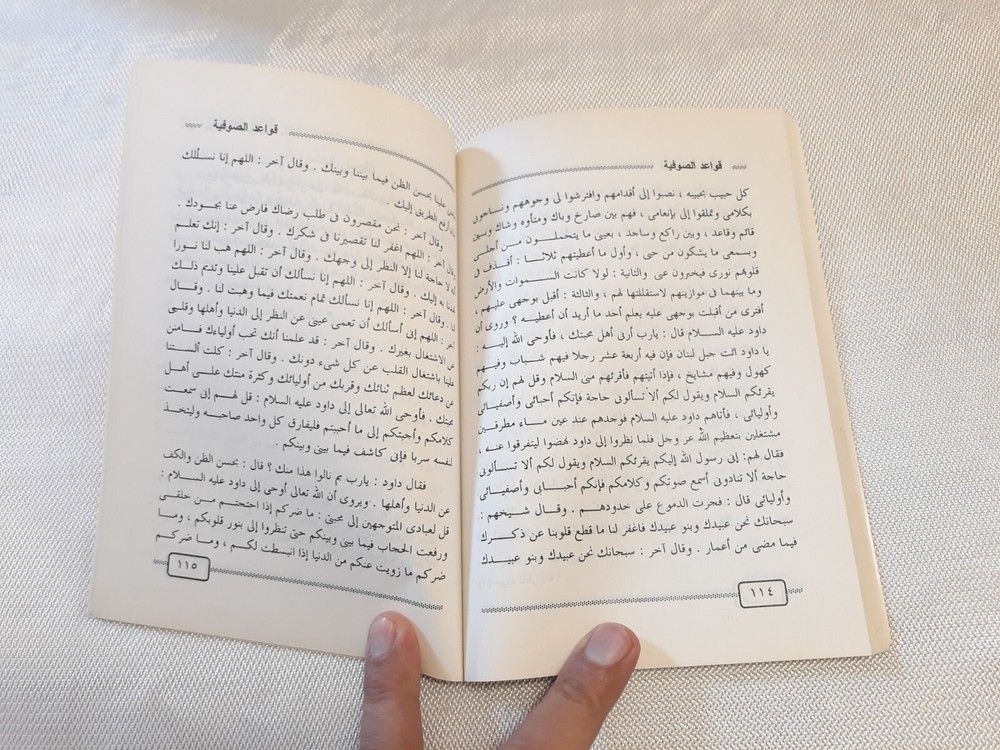 قواعد الصوفية
كل حبيب بحبيبه ، نصبوا إلى أقدامهم وافترشوا لى وجوههم وناجونى
بكلامى وتملقوا إلى بإنعامى ، فهم بين صارخ وباك ومتأوه وشاك وبين
قائم وقاعد ، وبين راكع وساجد ، بعينى ما يتحملون من أجلى
وبسمعى ما يشكون من حبى ، وأول ما أعطيتهم ثلاثا : أقذف فى
قلوبهم نورى فيخبرون عنى والثانية : لولا كانت السموات والأرض
وما بينهما فى موازينهم لاستقللتها لهم ، والثالثة : أقبل بوجهى عليهم ،
أفترى من أقبلت بوجهى عليه يعلم أحد ما أريد أن أعطيه ؟ وروى أن
داود عليه السلام قال : يارب أرنى أهل محبتك ، فأوحى الله إليه :
يا داود ائت جبل لبنان فإن فيه أربعة عشر رجلا فيهم شباب وفيهم
كهول وفيهم مشايخ ، فإذا أتيتهم فأقرئهم منى السلام وقل لهم إن ربكم
يقرئكم السلام ويقول لكم ألا تسألونى حاجة فإنكم أحبائى وأصفيائى
وأوليائى ، فأتاهم داود عليه السلام فوجدهم عند عين ماء مطرقين
مشتغلين بتعظيم الله عز وجل فلما نظروا إلى داود نهضوا ليتفرقوا عنه ،
فقال لهم: إنى رسول الله إليكم يقرئكم السلام ويقول لكم ألا تسألونى
حاجة ألا تنادونى أسمع صوتكم وكلامكم فإنكم أحبابى وأصفيائى
وأوليائى قال : فجرت الدموع على خدودهم . وقال شيخهم :
سبحانك نحن عبيدك وبنو عبيدك فاغفر لنا ما قطع قلوبنا عن ذكرك
فيما مضى من أعمار . وقال آخر : سبحانك نحن عبيدك وبنو عبيدك
١١٤
قواعد الصوفية
علينا بحسن الظن فيما بيننا وبينك . وقال آخر : اللهم إنا نسألك
أرفع الطريق إليك .
وقال آخر : نحن مقصرون فى طلب رضاك فارض عنا بجودك .
وقال آخر : اللهم اغفر لنا تقصيرنا فى شكرك . وقال آخر : إنك تعلم
لا حاجة لنا إلا النظر إلى وجهك . وقال آخر : اللهم هب لنا نورا
به إليك . وقال آخر : اللهم إنا نسألك أن تقبل علينا وتديم ذلك
لنا . وقال آخر : اللهم إنا نسألك تمام نعمتك فيما وهبت لنا . وقال
آخر : اللهم إنى أسألك أن تعمى عينى عن النظر إلى الدنيا وأهلها وقلبى
عن الاشتغال بغيرك . وقال آخر : قد علمنا أنك تحب أولياءك فامنن
علينا باشتغال القلب عن كل شىء دونك . وقال آخر : كلت ألسنتنا
عن دعائك لعظم ثنائك وقربك من أوليائك وكثرة منتك على أهل
محبتك . فأوحى الله تعالى إلى داود عليه السلام : قل لهم إنى سمعت
كلامكم وأجبتكم إلى ما أحببتم فليفارق كل واحد صاحبه وليتخذ
لنفسه سربا فإنى كاشف فيما بينى وبينكم .
فقال داود : يارب بم نالوا هذا منك ؟ قال : بحسن الظن والكف
عن الدنيا وأهلها . ويروى أن الله تعالى أوحى إلى داود عليه السلام :
قل لعبادى المتوجهين إلى محبتى : ما ضركم إذا احتجتم من خلقى
ورفعت الحجاب فيما بينى وبينكم حتى تنظروا إلى بنور قلوبكم ، وما
ضركم ما زويت عنكم من الدنيا إذا انبسطت لكم ، وما ضركم
١١٥